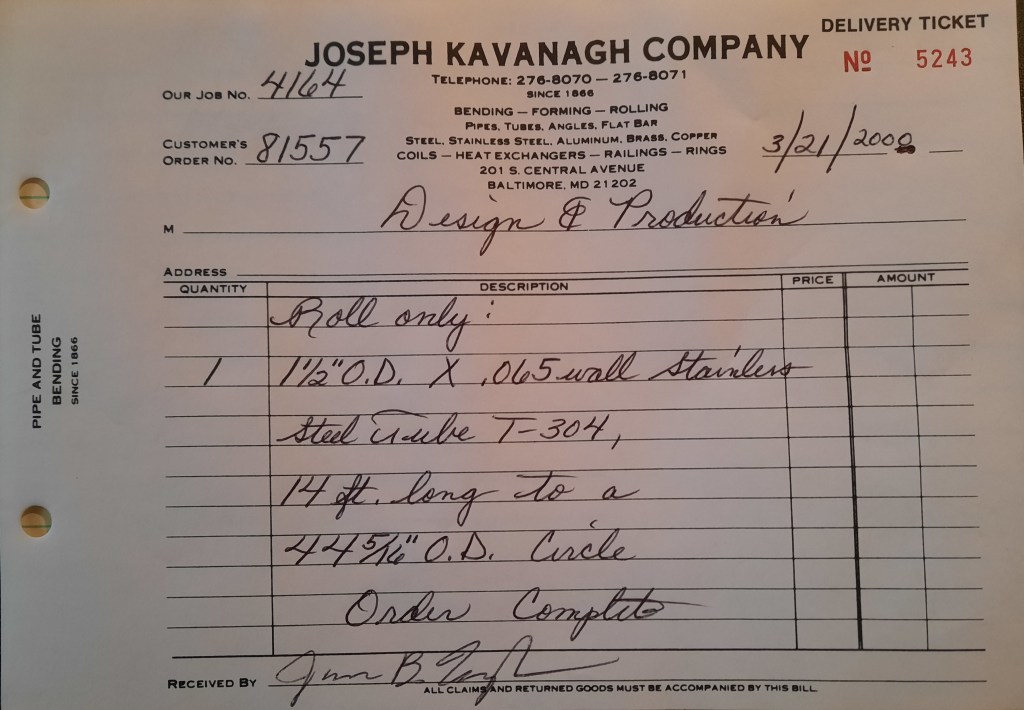 DELIVERY TICKET
JOSEPH KAVANAGH COMPANY
Nº 5243
TELEPHONE: 276-8070 — 276-8071
SINCE 1866
OUR JOB NO. 4164
BENDING — FORMING — ROLLING
PIPES, TUBES, ANGLES, FLAT BAR
CUSTOMER'S
ORDER NO. 81557
STEEL, STAINLESS STEEL, ALUMINUM, BRASS, COPPER
COILS — HEAT EXCHANGERS — RAILINGS — RINGS
3/21/2000
201 S. CENTRAL AVENUE
BALTIMORE, MD 21202
M Design & Production
ADDRESS
QUANTITY DESCRIPTION PRICE AMOUNT
Roll only:
1 1½" O.D. X .065 wall Stainless
Steel Tube T-304,
14 ft. long to a
44 5/16" O.D. Circle
Order Complete
RECEIVED BY
ALL CLAIMS AND RETURNED GOODS MUST BE ACCOMPANIED BY THIS BILL
PIPE AND TUBE
BENDING
SINCE 1866